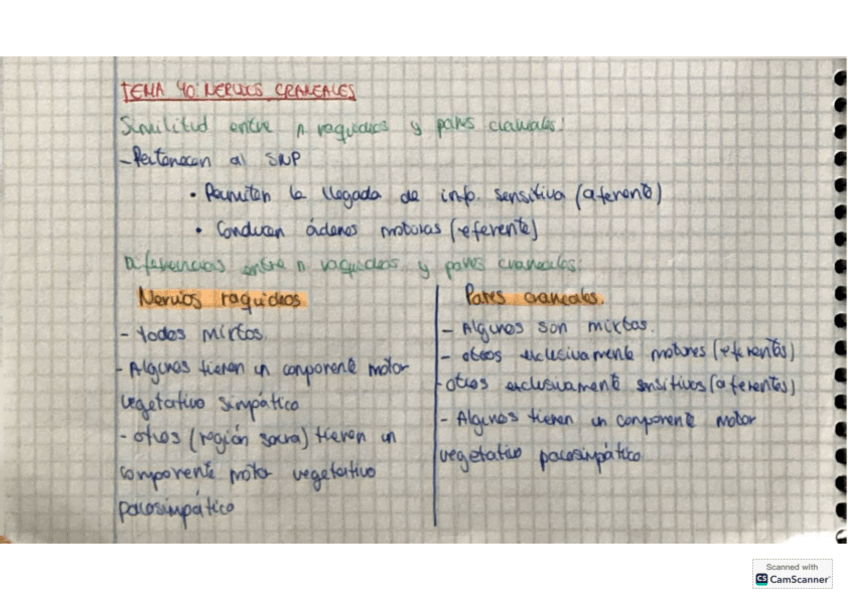 TEMA 40: NERVIOS CRANEALES
Similitud entre n raquideos y pares craneales:
- Pertenecen al SNP
• Permiten la llegada de info. sensitiva (aferente)
• Conducen órdenes motoras (eferente)
Diferencias entre n raquideos y pares craneales:
Nervios raquideos
- todos mixtos.
- Algunos tienen un componente motor
vegetativo simpático
- otros (región sacra) tienen un
componente motor vegetativo
parasimpático
Pares craneales.
- Algunos son mixtos.
- otros exclusivamente motores (eferentes)
- otros exclusivamente sensitivos (aferentes)
- Algunos tienen un componente motor
vegetativo parasimpático
Scanned with
CS CamScanner